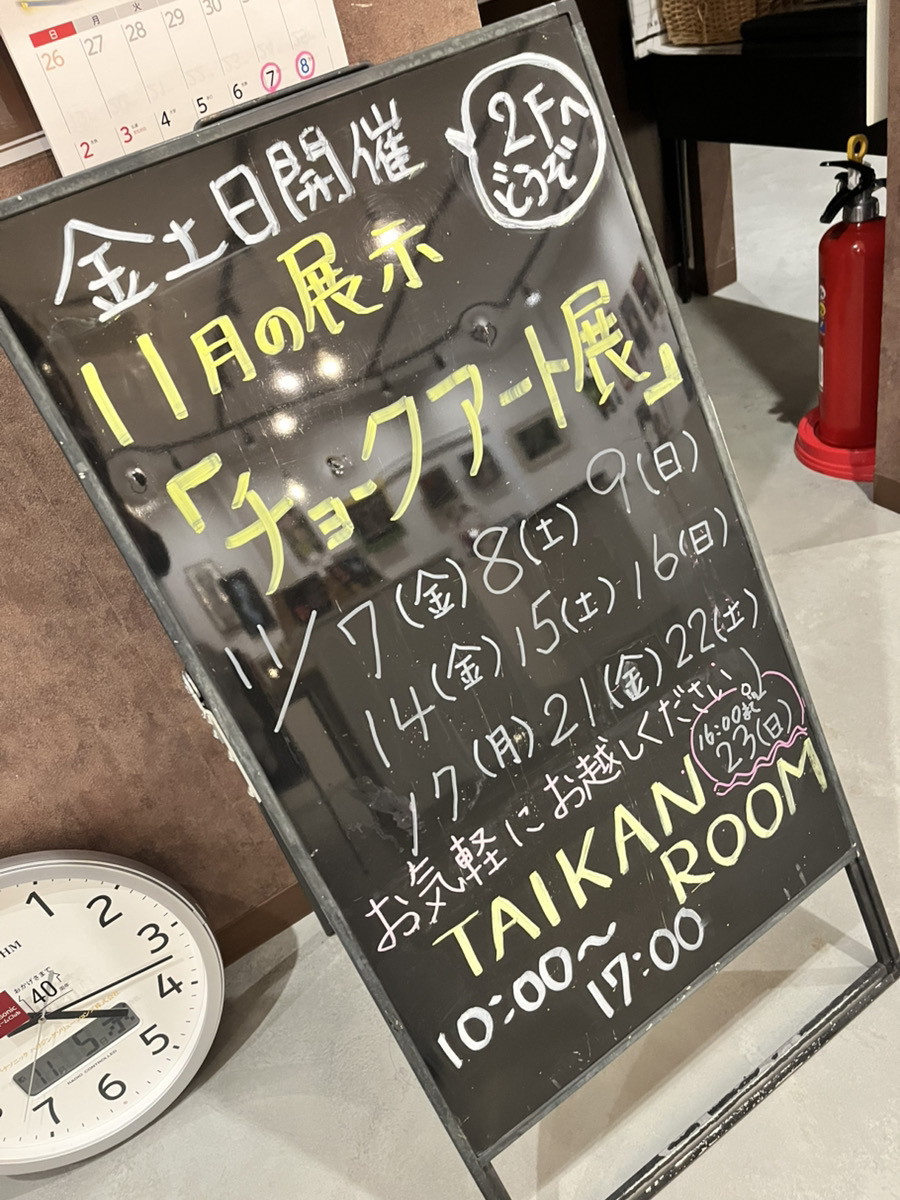 日 月 火
26 27 28 29 30
2 3 4 5 6 7 8
金土日開催
2Fへ
どうぞ
11月の展示
「チョークアート展」
11/7(金)8(土)9(日)
14(金)15(土)16(日)
17(月)21(金)22(土)
16:00迄
23(日)
お気軽にお越しください♪
TAIKAN
ROOM
10:00〜
17:00
おかげさまで
40
1 2 3 4 5 6 7
RADIO CONTROLLED